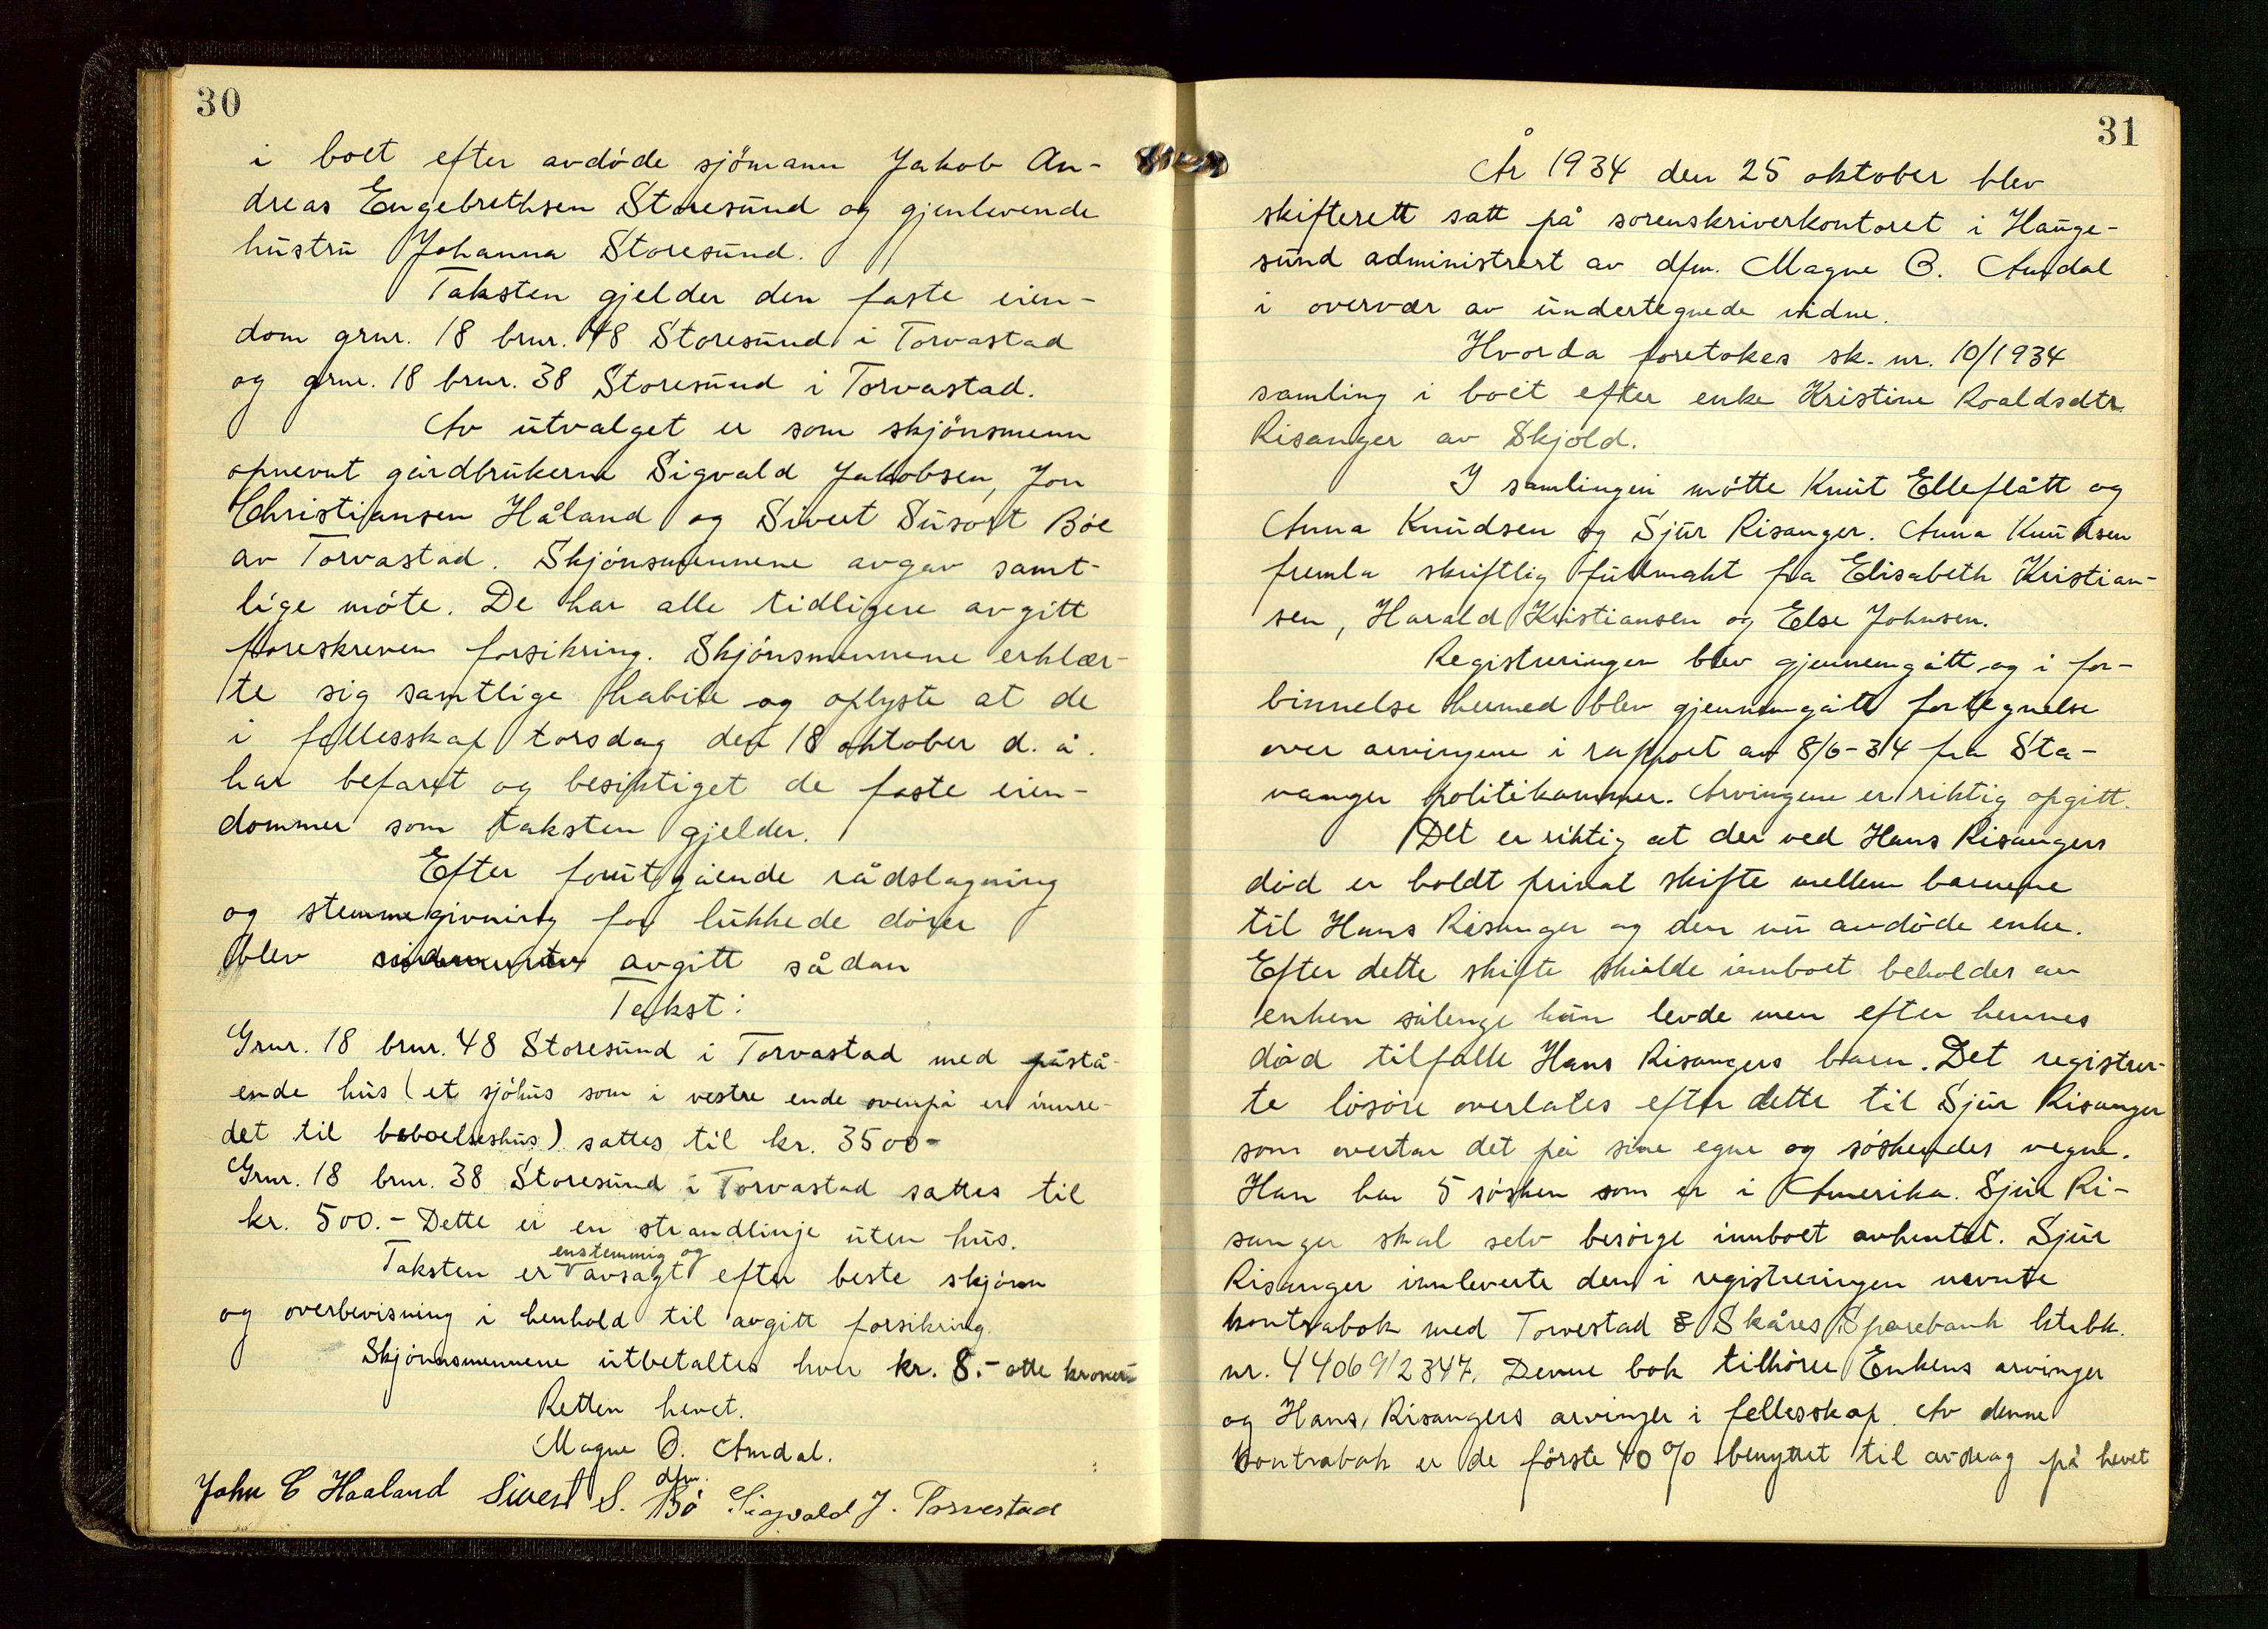 30
i boet efter avdöde sjömann Jakob An-
dreas Engebrethsen Storesund og gjenlevende
hustru Johanna Storesund.
Taksten gjelder den faste eien-
dom grnr. 18 brnr. 48 Storesund i Torvastad
og grnr. 18 brnr. 38 Storesund i Torvastad.
Av utvalget er som skjönsmenn
opnevnt gårdbrukerne Sigvald Jakobsen, Jon
Christiansen Håland og Sivert Susort Böe
av Torvastad. Skjönsmennene avgav samt-
lige möte. De har alle tidligere avgitt
foreskreven forsikring. Skjönsmennene erklær-
te sig samtlige habile og oplyste at de
i fellesskap torsdag den 18 oktober d. å.
har befaret og besiktiget de faste eien-
dommer som taksten gjelder.
Efter forutgående rådslagning
og stemmegivning for lukkede dörer
blev avgitt sådan
Takst:
Grnr. 18 brnr. 48 Storesund i Torvastad med påstå-
ende hus (et sjöhus som i vestre ende ovenpå er innre-
det til beboelseshus) sattes til kr. 3500-
Grnr. 18 brnr. 38 Storesund i Torvastad sattes til
kr. 500.- Dette er en strandlinje uten hus.
enstemmig og
Taksten er avsagt efter beste skjönn
og overbevisning i henhold til avgitt forsikring.
Skjönnsmennene utbetaltes hver kr. 8.- otte kroner-
Retten hevet.
Magne O. Amdal.
dfm.
John C Haaland Sivert S. Bö Sigvald J. Torvestad
31
År 1934 den 25 oktober blev
skifterett satt på sorenskriverkontoret i Hauge-
sund administrert av dfm. Magne O. Amdal
i overvær av undertegnede vidne.
Hvorda foretokes sk. nr. 10/1934
samling i boet efter enke Kristine Roaldsdtr.
Risanger av Skjold.
I samlingen mötte Knut Elleflått og
Anna Knudsen og Sjur Risanger. Anna Knudsen
fremla skriftlig fullmakt fra Elisabeth Kristian-
sen, Harald Kristiansen og Else Johnsen.
Registreringen blev gjennemgått og i for-
binnelse hermed blev gjennemgått fortegnelse
over arvingene i rapport av 8/6-34 fra Sta-
vanger politikammer. Arvingene er riktig opgitt.
Det er riktig at der ved Hans Risangers
död er holdt privat skifte mellem barnene
til Hans Risanger og den nu avdöde enke.
Efter dette skifte skulde innboet beholdes av
enken sålenge hun levde men efter hennes
död tilfalle Hans Risangers barn. Det registrer-
te lösöre overlates efter dette til Sjur Risanger
som overtar det på sine egne og söskendes vegne.
Han har 5 sösken som er i Amerika. Sjur Ri-
sanger skal selv besörge innboet avhentet. Sjur
Risanger innleverte den i registreringen nevnte
kontrabok med Torvestad & Skåres Sparebank ktrbk.
nr. 44069/2347. Denne bok tilhörer Enkens arvinger
og Hans Risangers arvinger i fellesskap. Av denne
kontrabok er de förste 40% benyttet til avdrag på hevet